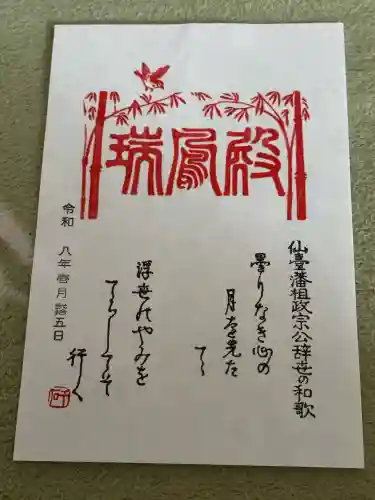 瑞鳳殿
仙臺藩祖政宗公辞世の和歌
曇りなき心の
月を先だ
てゝ
浮世のやみを
てらしてぞ
行く
令和 八年 壱月 拾五日